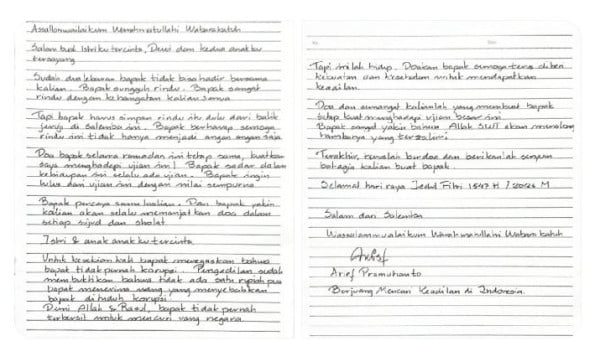 Assallamualaikum Warahmatullahi Wabarakatuh
Salam buat Istriku tercinta, Dewi dan kedua anakku
tersayang
Sudah dua lebaran bapak tidak bisa hadir bersama
kalian. Bapak sungguh rindu. Bapak sangat
rindu dengan kehangatan kalian semua
Tapi bapak harus simpan rindu itu dulu dari balik
jeruji di Salemba ini. Bapak berharap semoga
rindu ini tidak hanya menjadi angan angan saja
Doa bapak selama ramadan ini tetap sama, kuatkan
saya menghadapi ujian ini! Bapak sadar dalam
kehidupan ini selalu ada ujian. Bapak ingin
lulus dari ujian ini dengan nilai sempurna
Bapak percaya sama kalian. Dan bapak yakin
kalian akan selalu memanjatkan doa dalam
setiap sujud dan sholat
Istri & anak anakku tercinta
Untuk kesekian kali bapak menegaskan bahwa
bapak tidak pernah korupsi. Pengadilan sudah
membuktikan bahwa tidak ada satu rupiah pun
bapak menerima uang yang menyebabkan
bapak dituduh korupsi
Demi Allah & Rasul, bapak tidak pernah
terbersit untuk mencuri uang negara
Tapi inilah hidup. Doakan bapak semoga terus diberi
kekuatan dan kesehatan untuk mendapatkan
keadilan.
Doa dan semangat kalianlah yang membuat bapak
tetap kuat menghadapi ujian besar ini
Bapak sangat yakin bahwa Allah SWT akan menolong
hambanya yang terzalimi
Terakhir, teruslah berdoa dan berikanlah senyum
bahagia kalian buat bapak.
Selamat hari raya Iedul Fitri 1447 H / 2026 M
Salam dari Salemba
Wassalammualaikum Warahmatullahi Wabarakatuh
Arief
Arief Pramuhanto
Berjuang Mencari Keadilan di Indonesia